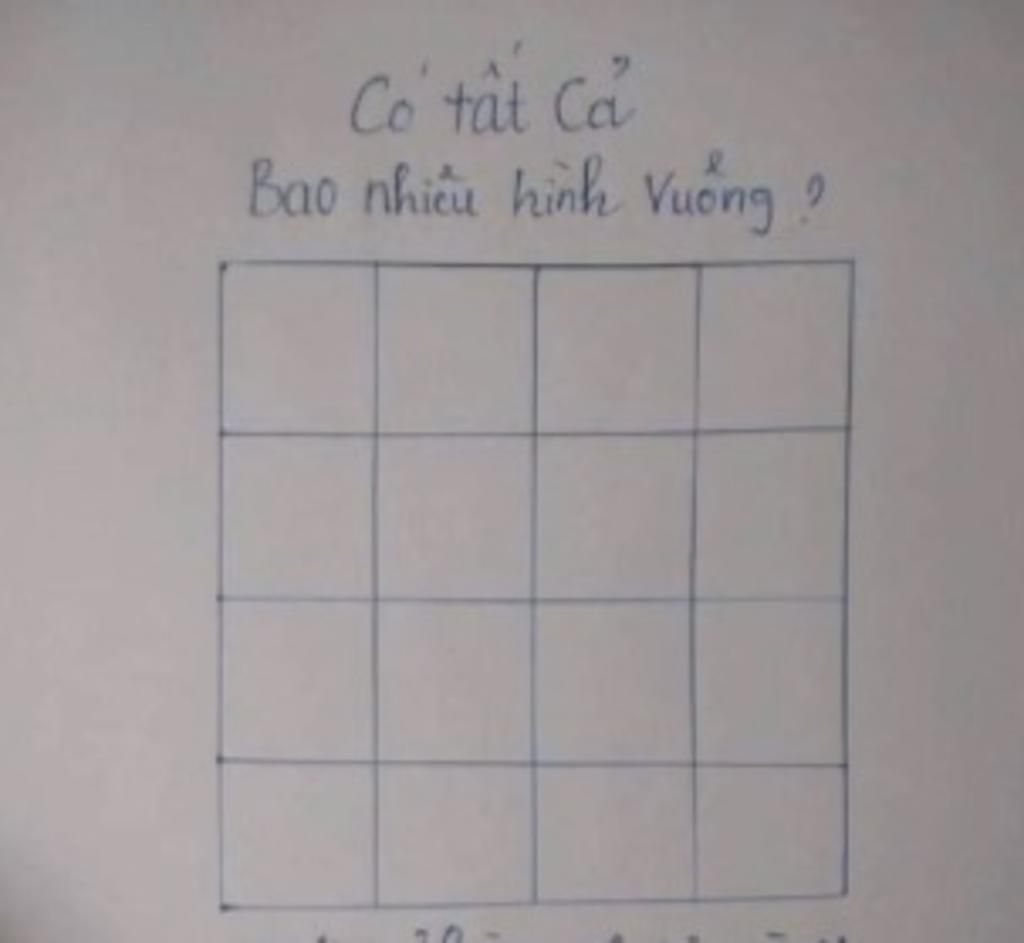 Có tất Cả
Bao nhiêu hình Vuông ?